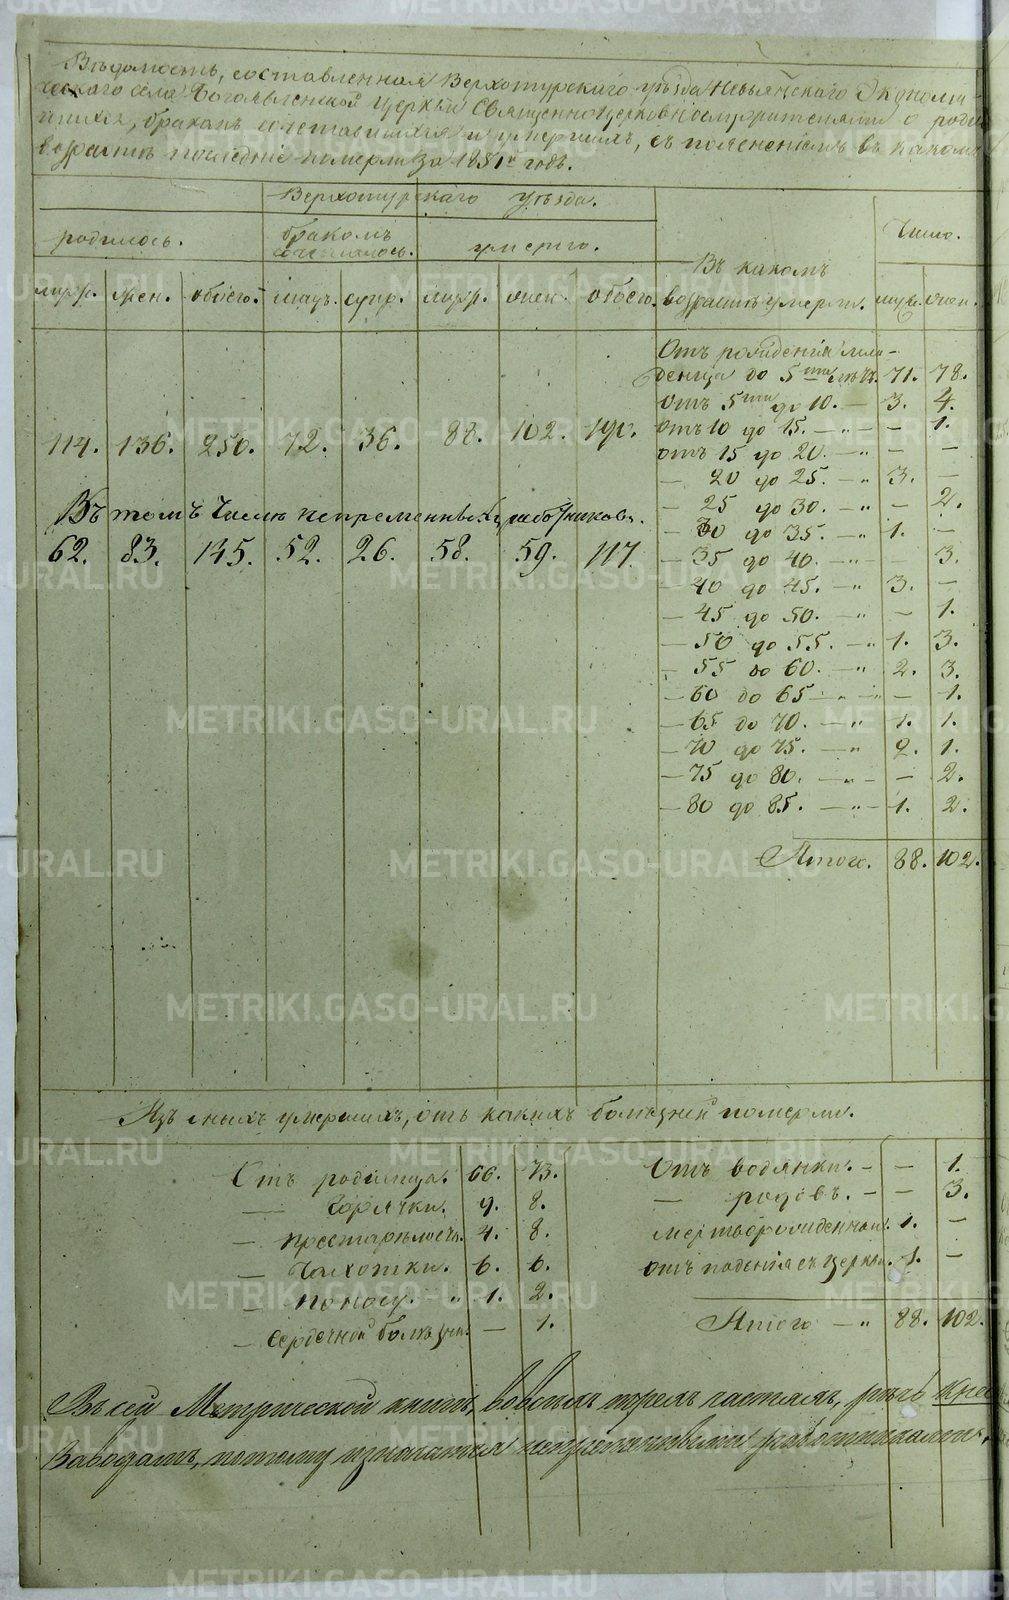 Вѣдомость, составленная Верхотурскаго уѣзда Невьянскаго Экономи-
ческаго села Богоявленской Церкви Священноцерковнослужителями о роди-
вшихся, бракомъ сочетавшихся и умершихъ, съ поясненіемъ въ какомъ
возрастѣ последніе померли за 1851й годъ.
Верхотурскаго уѣзда.
родилось. бракомъ сочеталось. умерло. Число.
Въ какомъ
муж. жен. обоего. лицъ. супр. муж. жен. обоего. возрастѣ умерли. муж. жен.
Отъ рожденія мла-
денца до 5ти лѣтъ. 71. 78.
отъ 5ти до 10. — 3. 4.
114. 136. 250. 72. 36. 88. 102. 190. отъ 10 до 15. — „ — — 1.
отъ 15 до 20. — „ — —
— 20 до 25. — „ 3. —
— 25 до 30. — „ — 2.
Въ томъ числѣ непременныхъ работниковъ.
— 30 до 35. — „ 1. —
62. 83. 145. 52. 26. 58. 59. 117.
— 35 до 40. — „ — 3.
— 40 до 45. — „ 3. —
— 45 до 50. — „ — 1.
— 50 до 55. — „ 1. 3.
— 55 до 60. — „ 2. 3.
— 60 до 65 — „ — 1.
— 65 до 70. — „ 1. 1.
— 70 до 75. — „ 2. 1.
— 75 до 80. — „ — 2.
— 80 до 85. — „ 1. 2.
Итого. 88. 102.
Изъ оныхъ умершихъ, отъ какихъ болѣзней померли.
Отъ родимца. 66. 73. Отъ водянки. — — 1.
— Горячки. 9. 8. — родовъ. — — 3.
— престарѣлости. 4. 8. мертворожденныхъ. 1. —
— Чахотки. 6. 6. отъ паденія съ церкви. 1. —
— поносу. „ 1. 2. Итого — „ 88. 102.
— Сердечной болѣзни. — 1.
Въ сей Метрической книгѣ, во всѣхъ трехъ частяхъ,
Заводамъ, потому непременными работниками
METRIKI.GASO-URAL.RU